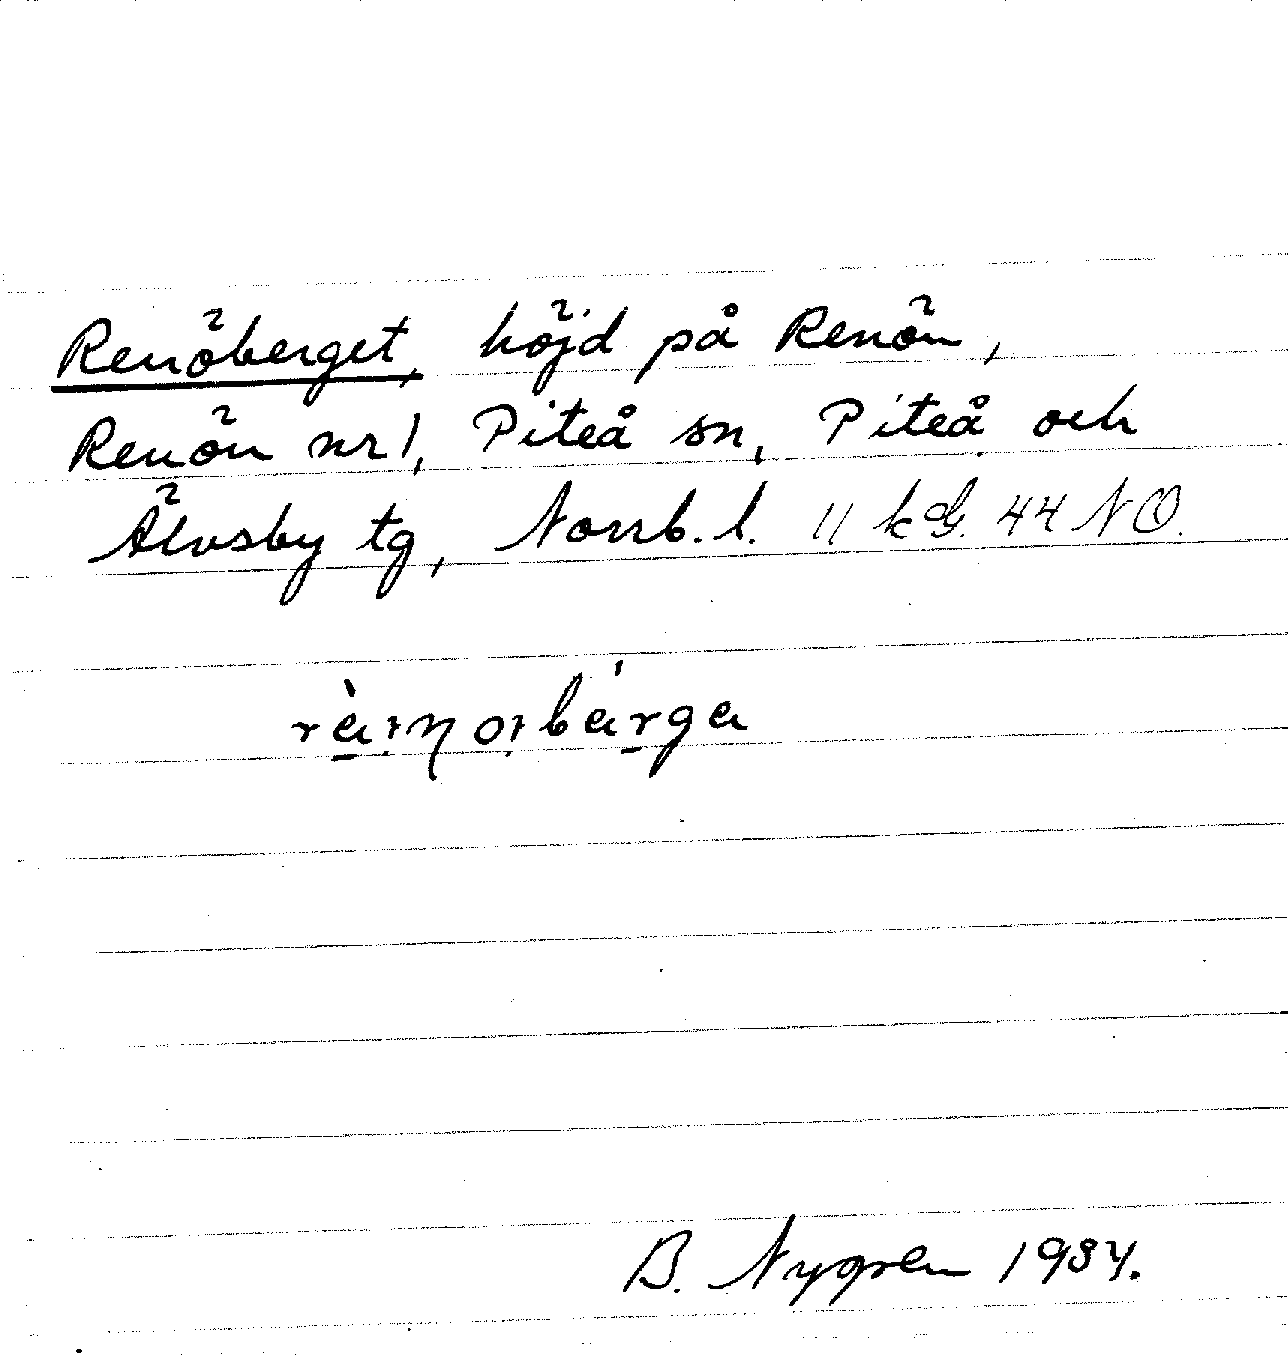 Renöberget, höjd på Renön,
Renön nr 1, Piteå sn, Piteå och
Älvsby tg, Norrb. l. 11 k d G. 44 NO.
B. Nygren 1934.